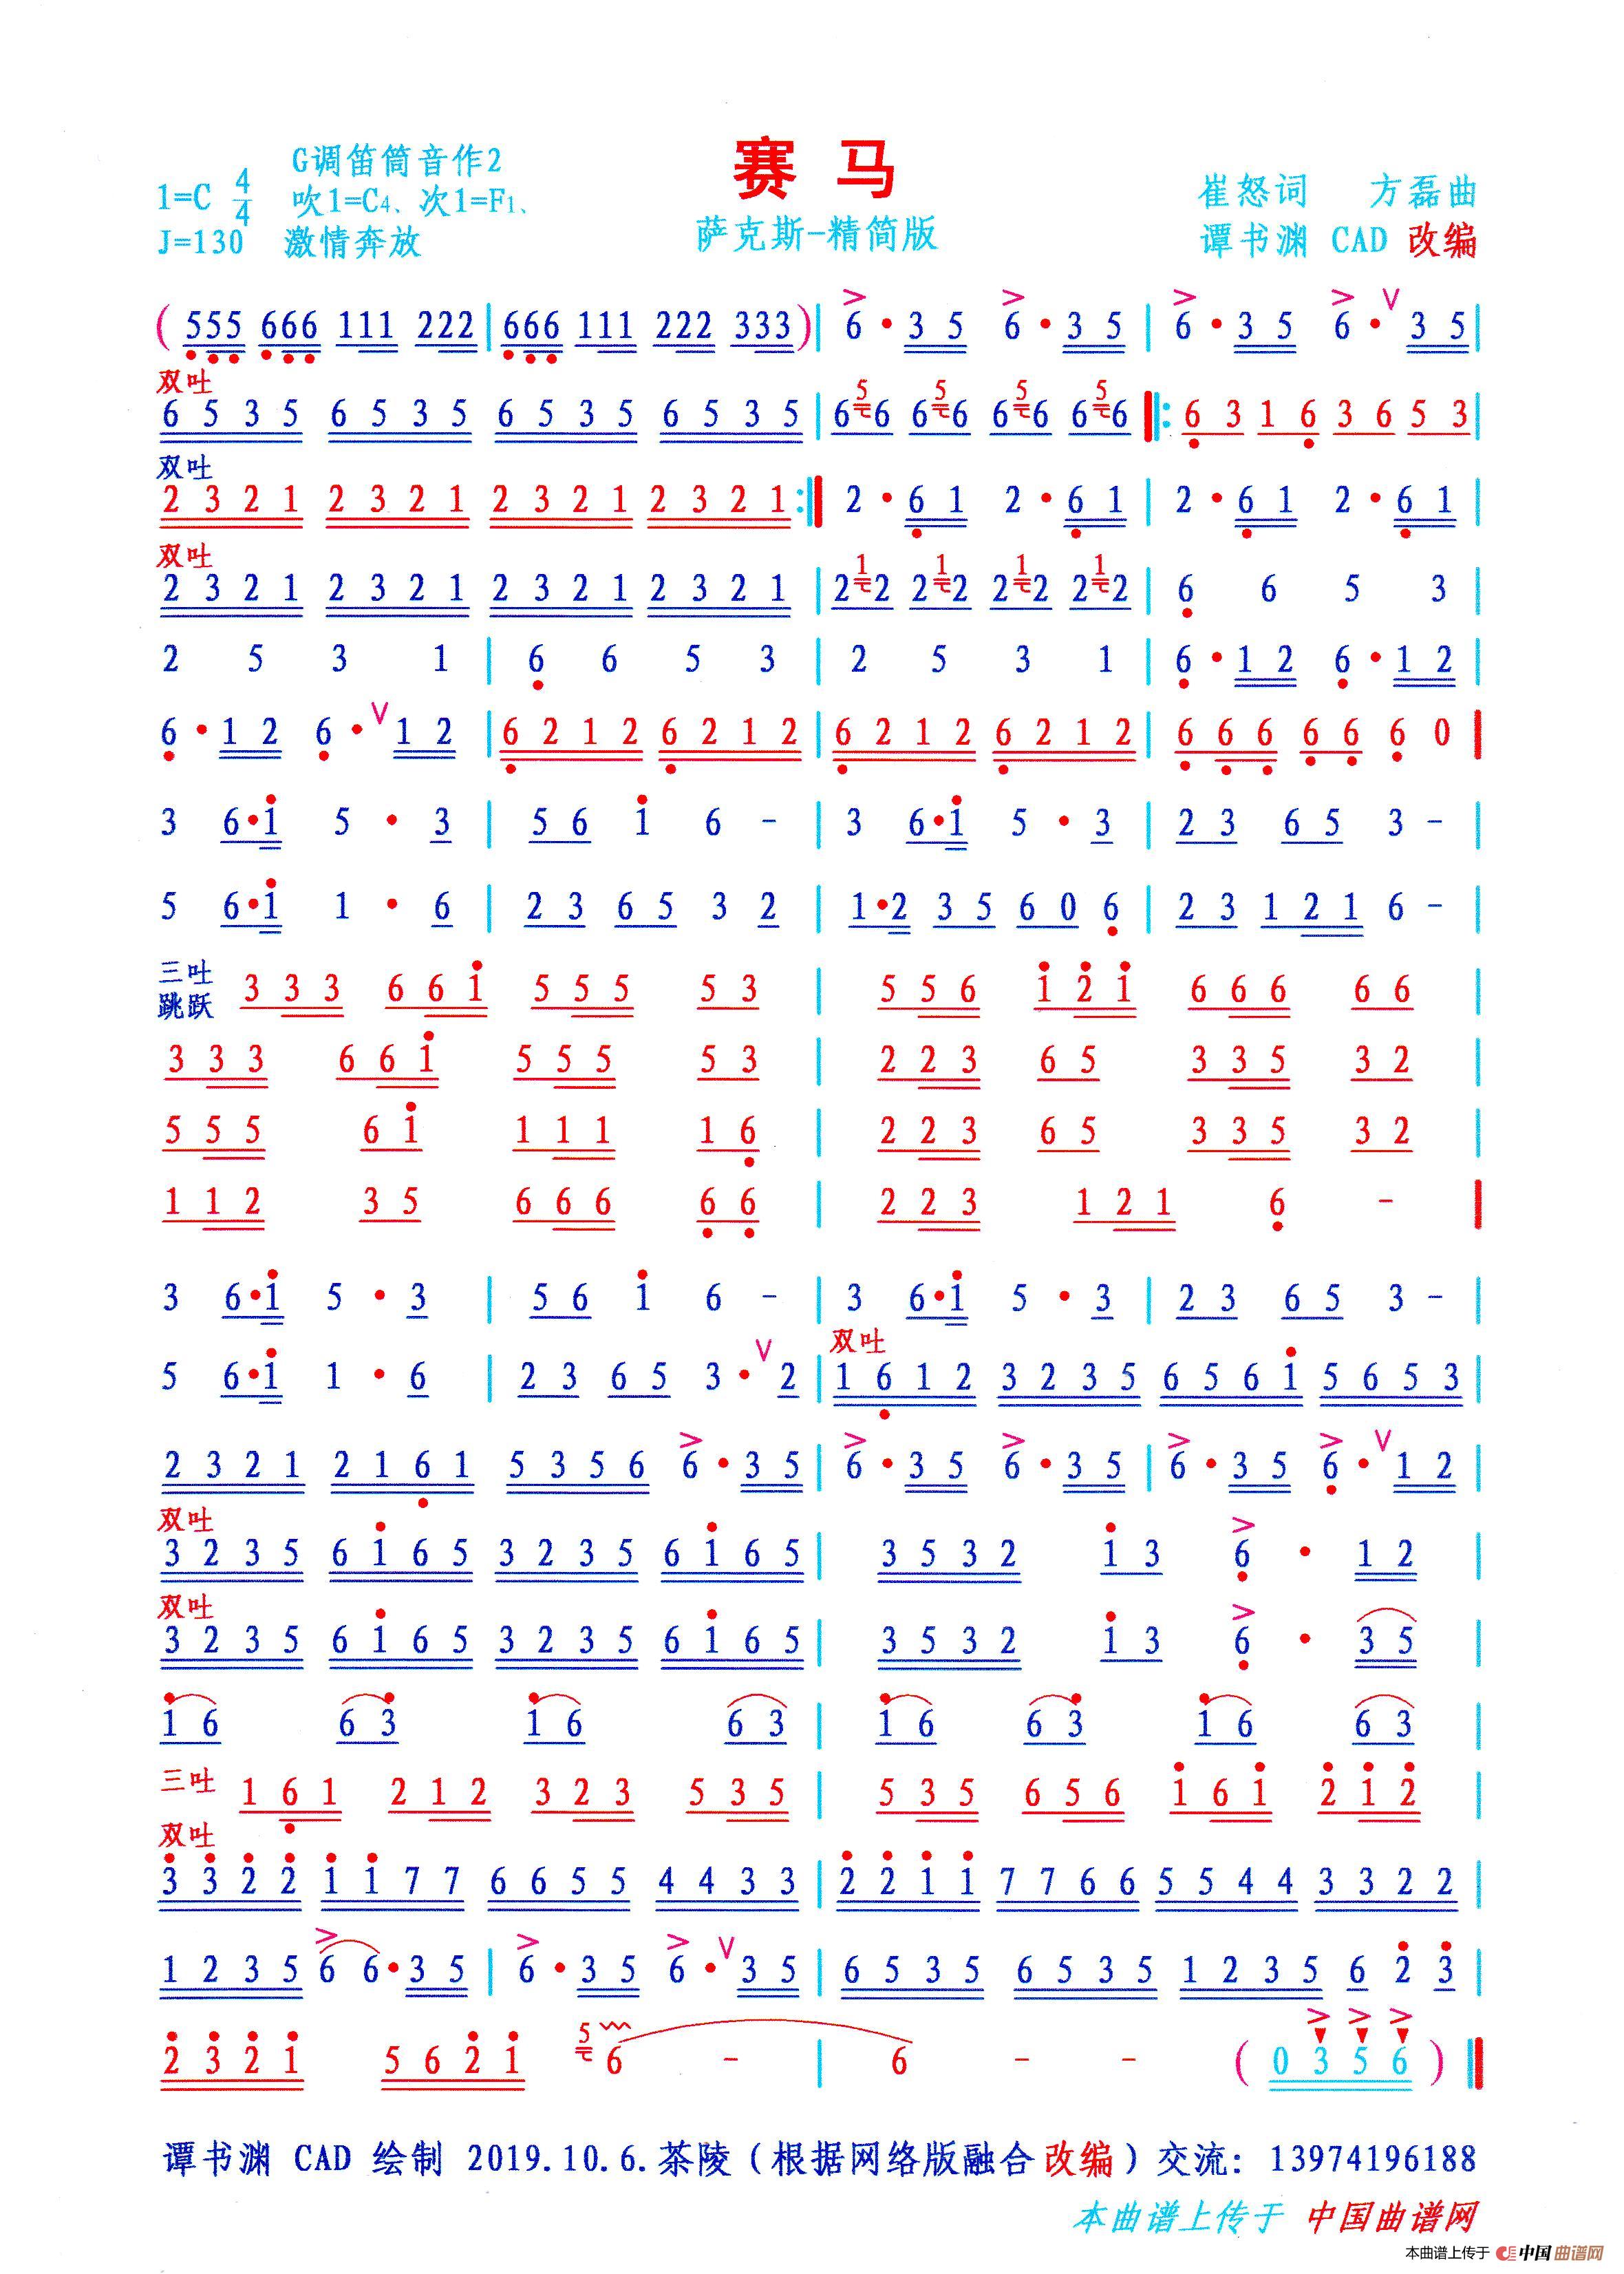 赛 马
萨克斯-精简版
1=C 4/4
J=130 激情奔放
G调笛筒音作2
吹1=C4、次1=F1、
崔怒词 方磊曲
谭书渊 CAD 改编
( 555 666 111 222 | 666 111 222 333 ) | > 6 · 3 5 > 6 · 3 5 | > 6 · 3 5 > 6 · V 3 5 |
双吐
6 5 3 5 6 5 3 5 6 5 3 5 6 5 3 5 | 6 5 6 6 5 6 6 5 6 6 5 6 |: 6 3 1 6 3 6 5 3 |
双吐
2 3 2 1 2 3 2 1 2 3 2 1 2 3 2 1 :| 2 · 6 1 2 · 6 1 | 2 · 6 1 2 · 6 1 |
双吐
2 3 2 1 2 3 2 1 2 3 2 1 2 3 2 1 | 2 1 2 2 1 2 2 1 2 2 1 2 | 6 6 5 3 |
2 5 3 1 | 6 6 5 3 | 2 5 3 1 | 6 · 1 2 6 · 1 2 |
6 · 1 2 6 · V 1 2 | 6 2 1 2 6 2 1 2 | 6 2 1 2 6 2 1 2 | 6 6 6 6 6 6 0 |
3 6 · i 5 · 3 | 5 6 i 6 - | 3 6 · i 5 · 3 | 2 3 6 5 3 - |
5 6 · i 1 · 6 | 2 3 6 5 3 2 | 1 · 2 3 5 6 0 6 | 2 3 1 2 1 6 - |
三吐
跳跃 3 3 3 6 6 i 5 5 5 5 3 | 5 5 6 i 2 i 6 6 6 6 6 |
3 3 3 6 6 i 5 5 5 5 3 | 2 2 3 6 5 3 3 5 3 2 |
5 5 5 6 i 1 1 1 1 6 | 2 2 3 6 5 3 3 5 3 2 |
1 1 2 3 5 6 6 6 6 6 | 2 2 3 1 2 1 6 - |
3 6 · i 5 · 3 | 5 6 i 6 - | 3 6 · i 5 · 3 | 2 3 6 5 3 - |
双吐
5 6 · i 1 · 6 | 2 3 6 5 3 · V 2 | 1 6 1 2 3 2 3 5 6 5 6 i 5 6 5 3 |
2 3 2 1 2 1 6 1 5 3 5 6 > 6 · 3 5 | > 6 · 3 5 > 6 · 3 5 | > 6 · 3 5 > 6 · V 1 2 |
双吐
3 2 3 5 6 i 6 5 3 2 3 5 6 i 6 5 | 3 5 3 2 i 3 > 6 · 1 2 |
双吐
3 2 3 5 6 i 6 5 3 2 3 5 6 i 6 5 | 3 5 3 2 i 3 > 6 · 3 5 |
i 6 6 3 i 6 6 3 | i 6 6 3 i 6 6 3 |
三吐 1 6 1 2 1 2 3 2 3 5 3 5 | 5 3 5 6 5 6 i 6 i 2 i 2 |
双吐
3 3 2 2 i i 7 7 6 6 5 5 4 4 3 3 | 2 2 i i 7 7 6 6 5 5 4 4 3 3 2 2 |
1 2 3 5 > 6 6 · 3 5 | > 6 · 3 5 > 6 · V 3 5 | 6 5 3 5 6 5 3 5 1 2 3 5 6 2 3 |
2 3 2 i 5 6 2 i 5 6 - | 6 - - ( 0 3 5 6 ) ||
谭书渊 CAD 绘制 2019.10.6.茶陵（根据网络版融合改编）交流: 13974196188
本曲谱上传于 中国曲谱网
本曲谱上传于 中国曲谱网